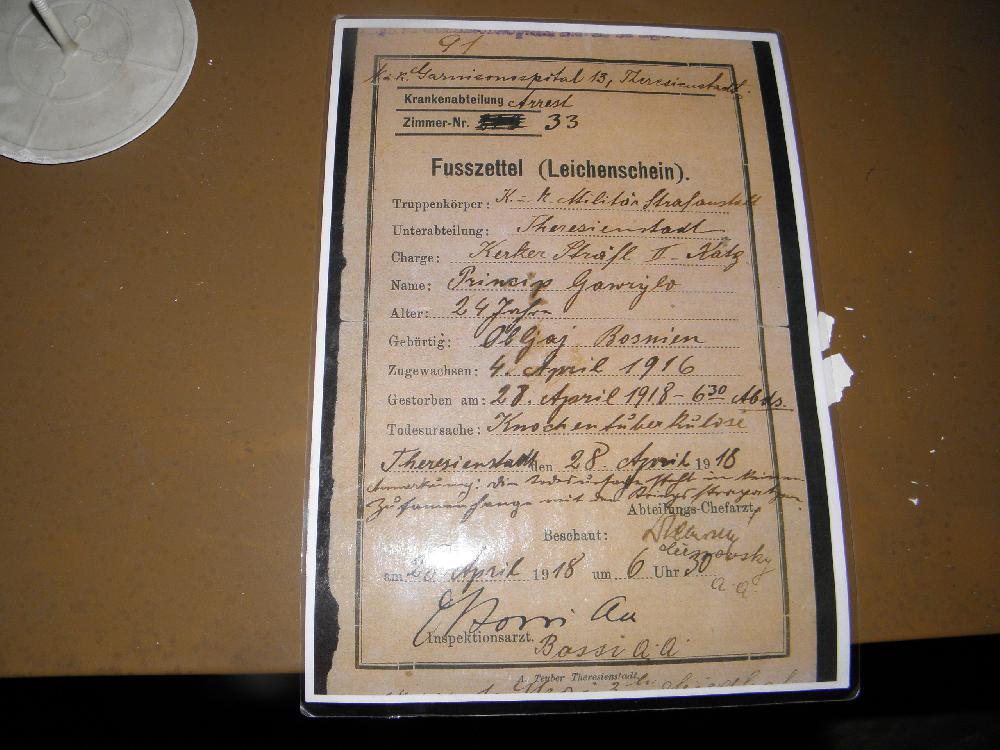 91
K.u.K. Garnisonsspital 13, Theresienstadt.
Krankenabteilung Arrest
Zimmer-Nr. 33
Fusszettel (Leichenschein).
Truppenkörper: K.-k. Militär Strafanstalt
Unterabteilung: Theresienstadt
Charge: Kerker Sträfl II-Kátg
Name: Princip Gawrylo
Alter: 24 Jahre
Gebürtig: Obljaj Bosnien
Zugewachsen: 4. April 1916
Gestorben am: 28. April 1918 - 6 30 Abds.
Todesursache: Knochentuberkulose
Theresienstadt den 28 April 1918
Anmerkung: die Todesursache steht in keinem
Zusammenhange mit den Kriegsstrapazen
Abteilungs-Chefarzt,
Beschaut:
am April 1918 um 6 Uhr 30
a. a.
Inspektionsarzt.
Bassi a. a.
A. Teuber Theresienstadt.